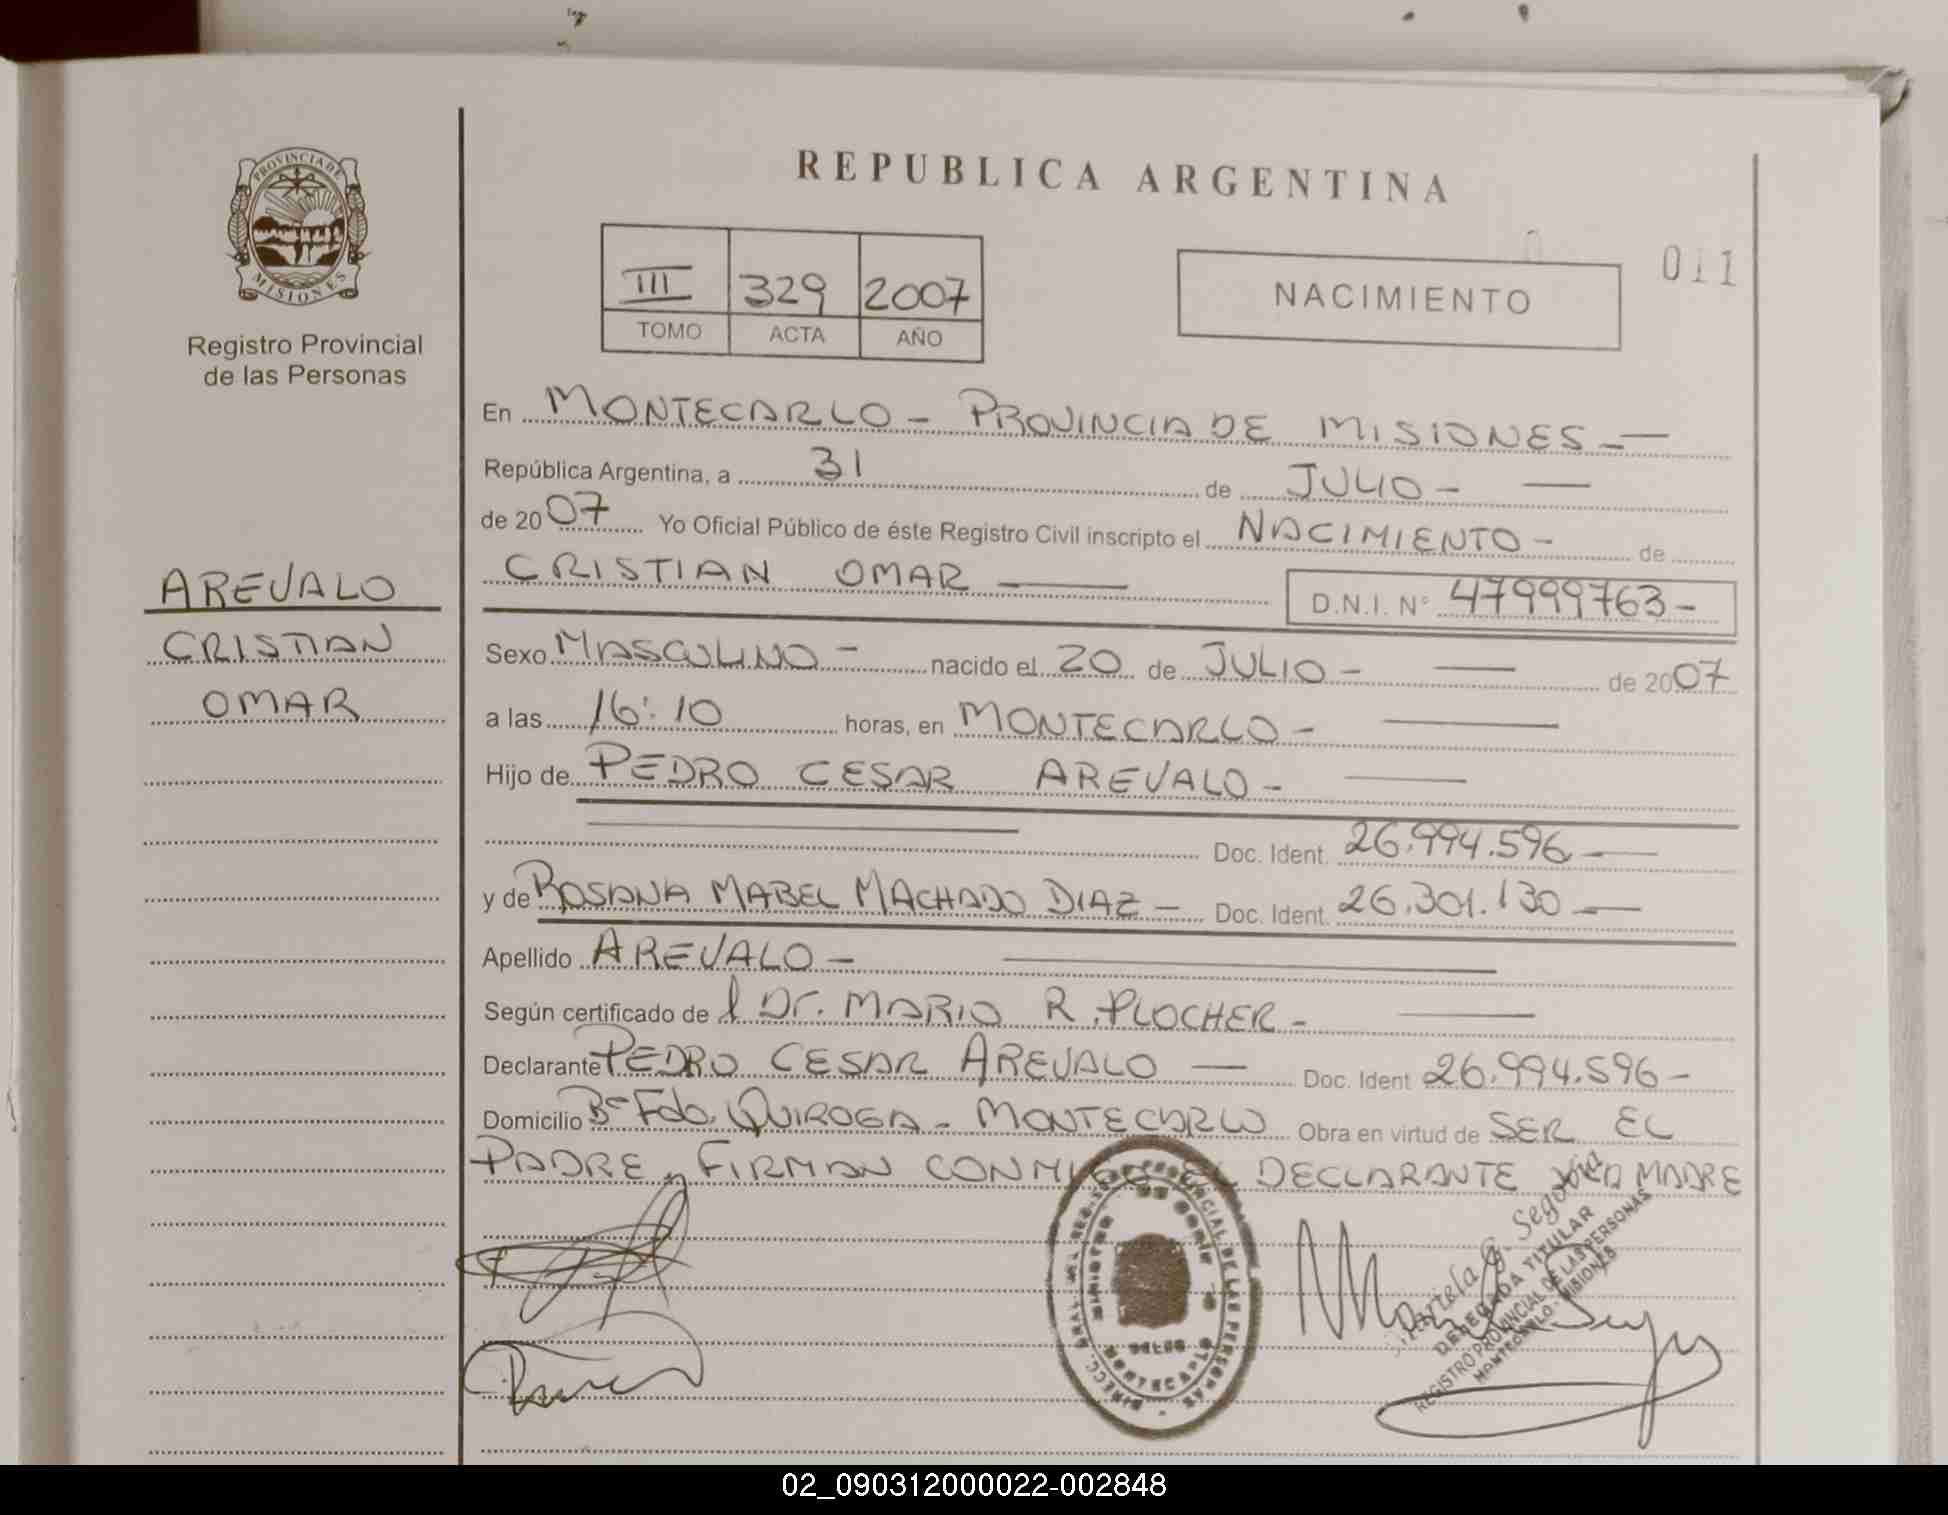 REPUBLICA ARGENTINA
PROVINCIA DE
MISIONES
Registro Provincial
de las Personas
III 329 2007
TOMO ACTA AÑO
NACIMIENTO
011
En MONTECARLO - PROVINCIA DE MISIONES -
República Argentina, a 31 de JULIO -
de 2007 Yo Oficial Público de éste Registro Civil inscripto el NACIMIENTO - de
CRISTIAN OMAR D.N.I. N° 47999763-
AREVALO
CRISTIAN
OMAR
Sexo MASCULINO - nacido el 20 de JULIO - de 2007
a las 16:10 horas, en MONTECARLO -
Hijo de PEDRO CESAR AREVALO -
Doc. Ident. 26.994.596 -
y de ROSANA MABEL MACHADO DIAZ - Doc. Ident. 26.301.130 -
Apellido AREVALO -
Según certificado de l Dr. MARIO R. PLOCHER -
Declarante PEDRO CESAR AREVALO - Doc. Ident 26.994.596 -
Domicilio B° Fdo. QUIROGA - MONTECARLO Obra en virtud de SER EL
PADRE, FIRMAN CONMIGO EL DECLARANTE MADRE
Mariela G. Segovia
DELEGADA TITULAR
REGISTRO PROVINCIAL DE LAS PERSONAS
MONTECARLO - MISIONES
02_090312000022-002848